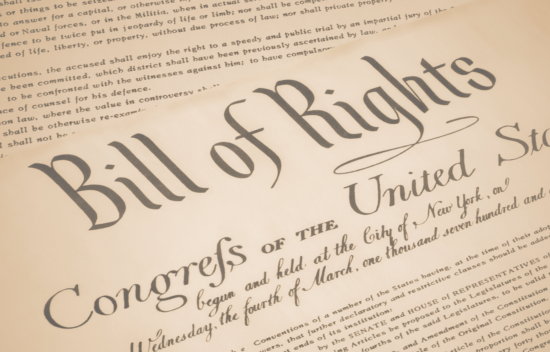 or things to be seized
to answer for a capital, or otherwise
d or Naval forces, or in the Militia, when in actual
fence to be twice put in jeopardy of life or limb; nor shall be
ed of life, liberty, or property, without due process of law; nor shall private property
cutions, the accused shall enjoy the right to a speedy and public trial by an impartial jury of the
been committed, which district shall have been previously ascertained by law,
to be confronted with the witnesses against him; to have
ce of counsel for his defence.
on law, where the value in controversy
shall be otherwise
shall not be
Bill of Rights
Congreſs OF THE United Sta
begun and held at the City of New York, on
Wednesday, the fourth of March, one thousand seven hundred and
Conventions of a number of the States having, at the time of their
that further declaratory and restrictive clauses should be
ends of its institution:
by the SENATE and HOUSE of REPRESENTATIVES
ing Articles be proposed to the Legislatures of the
of the said Legislatures, to be valid
and Amendment of the Constitution
of the Original Constitution.
of the Constitution